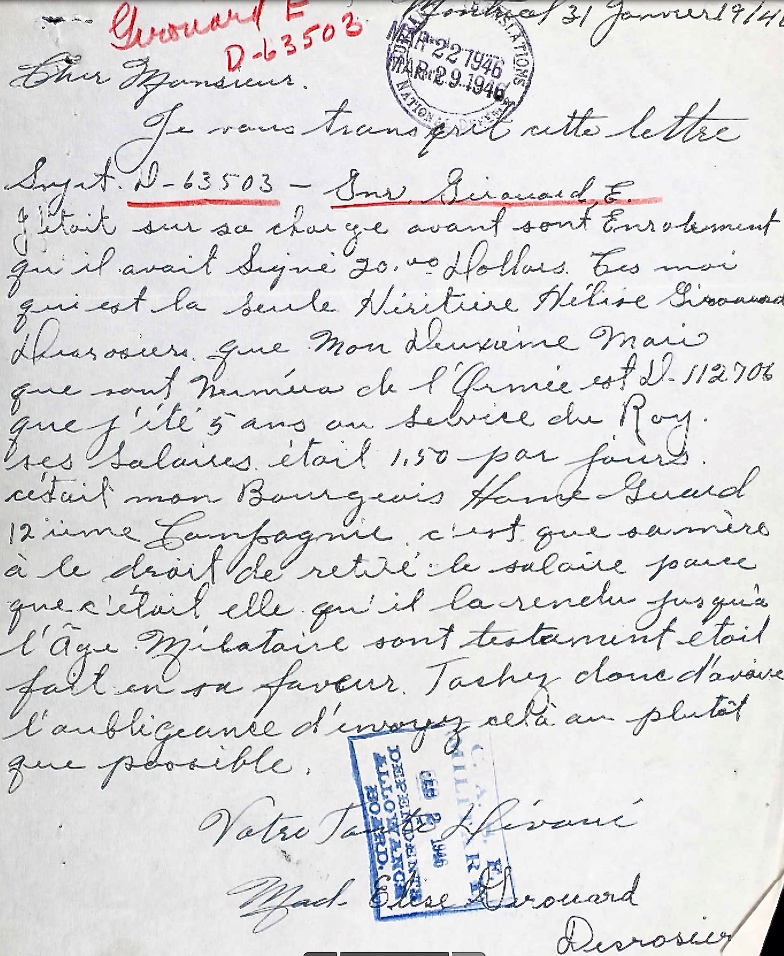 Girouard E
D-63503
Montreal 31 Janvier 1946
MAR 22 1946
MAR 29 1946
NATIONAL
Cher Monsieur.
Je vous transcrit cette lettre
Sujet. D-63503 – Snr. Girouard, E.
J'était sur sa charge avant sont Enrolement
qu'il avait Signé 20.00 Dollars. Ces moi
qui est la seule Héritière Hélise Girouard
Durosiers que Mon Deuxième Mari
que sont Numéro de l'Ormée est D-112706
que j'été 5 ans au Service du Roy.
ses Salaires était 1.50 par jours.
c'était mon Bourgeois Home Guard
12 ième Compagnie c'est que sa mère
à le droit de retiré le salaire parce
que c'était elle qu'il la rendu jusqu'à
l'Âge Militaire sont testament etait
fait en sa faveur. Tachez donc d'avoire
l'aubligeance d'envoyez celà au plutôt
que possible.
DEPENDENTS
ALLOWANCE
BOARD.
2 1946
Votre Tante Dévoué
Mad. Elise Girouard
Desrosier